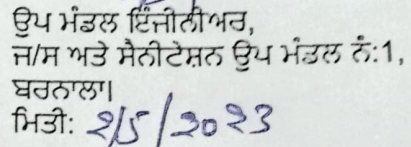 ਉਪ ਮੰਡਲ ਇੰਜੀਨੀਅਰ,
ਜ/ਸ ਅਤੇ ਸੈਨੀਟੇਸ਼ਨ ਉਪ ਮੰਡਲ ਨੰ:1,
ਬਰਨਾਲਾ।
ਮਿਤੀ: 2/5/2023